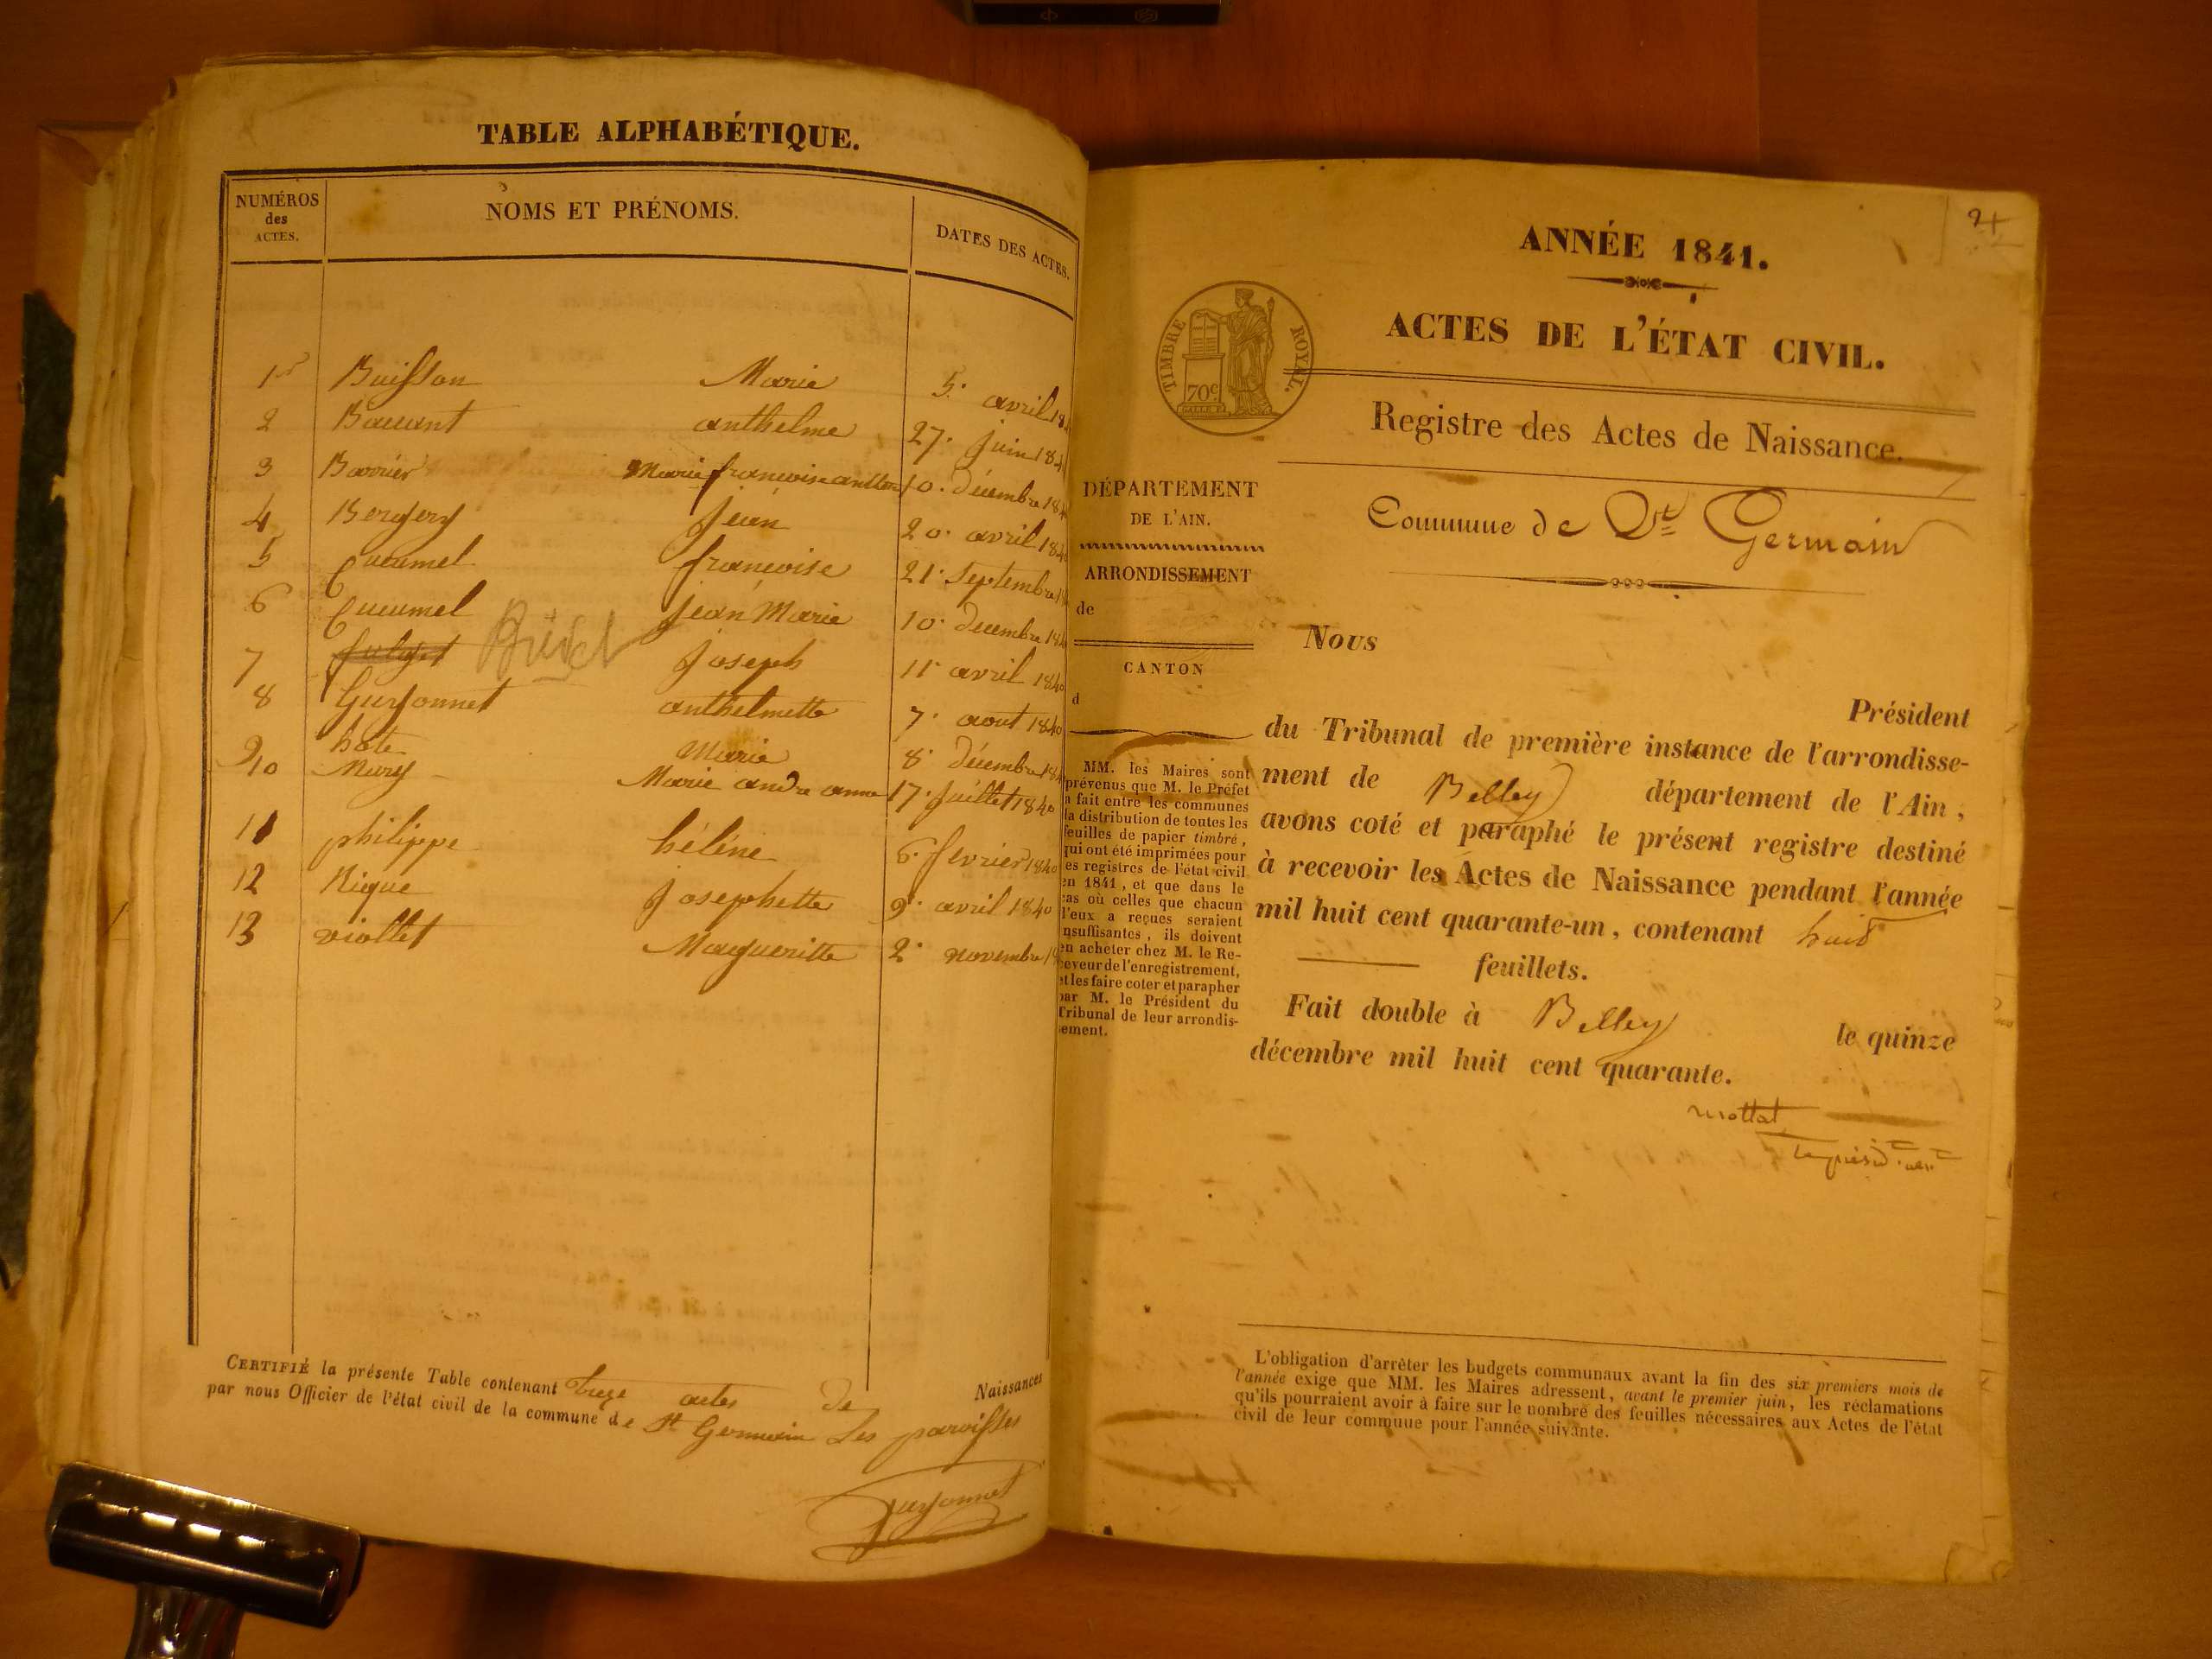 TABLE ALPHABÉTIQUE.
NUMÉROS des ACTES. NOMS ET PRÉNOMS. DATES DES ACTES.
1er Buisson Marie 5. avril
2 anthelme 27. Juin
3 Barrier Marie francoise 10. décembre
4 Bergery Jean 20. avril
5 francoise 21. Septembre
6 Jean Marie 10. décembre
7 Joseph 11. avril 1840
8 Guyonnet anthelmette 7. aout 1840
9 hote Marie 8. décembre
10 Mury Marie andre anne 17. Juillet 1840
11 philippe héléne 6. fevrier 1840
12 Nique Josephette 9. avril 1840
13 viollet Margueritte 2. novembre
CERTIFIÉ la présente Table contenant treize actes de Naissances
par nous Officier de l'état civil de la commune de St Germain Les paroisses
Guyonnet
ANNÉE 1841.
ACTES DE L'ÉTAT CIVIL.
TIMBRE ROYAL.
70c
Registre des Actes de Naissance.
Commune de St Germain
DÉPARTEMENT
DE L'AIN.
ARRONDISSEMENT
de
CANTON
d
MM. les Maires sont
prévenus que M. le Préfet
a fait entre les communes
la distribution de toutes les
feuilles de papier timbré,
qui ont été imprimées pour
es registres de l'état civil
en 1841, et que dans le
cas où celles que chacun
d'eux a reçues seraient
insuffisantes, ils doivent
en acheter chez M. le Re-
ceveur de l'enregistrement,
et les faire coter et parapher
par M. le Président du
Tribunal de leur arrondis-
sement.
Nous
Président
du Tribunal de première instance de l'arrondisse-
ment de Belley département de l'Ain,
avons coté et paraphé le présent registre destiné
à recevoir les Actes de Naissance pendant l'année
mil huit cent quarante-un, contenant huit
feuillets.
Fait double à Belley le quinze
décembre mil huit cent quarante.
mottat
L'obligation d'arrêter les budgets communaux avant la fin des six premiers mois de
l'année exige que MM. les Maires adressent, avant le premier juin, les réclamations
qu'ils pourraient avoir à faire sur le nombre des feuilles nécessaires aux Actes de l'état
civil de leur commune pour l'année suivante.